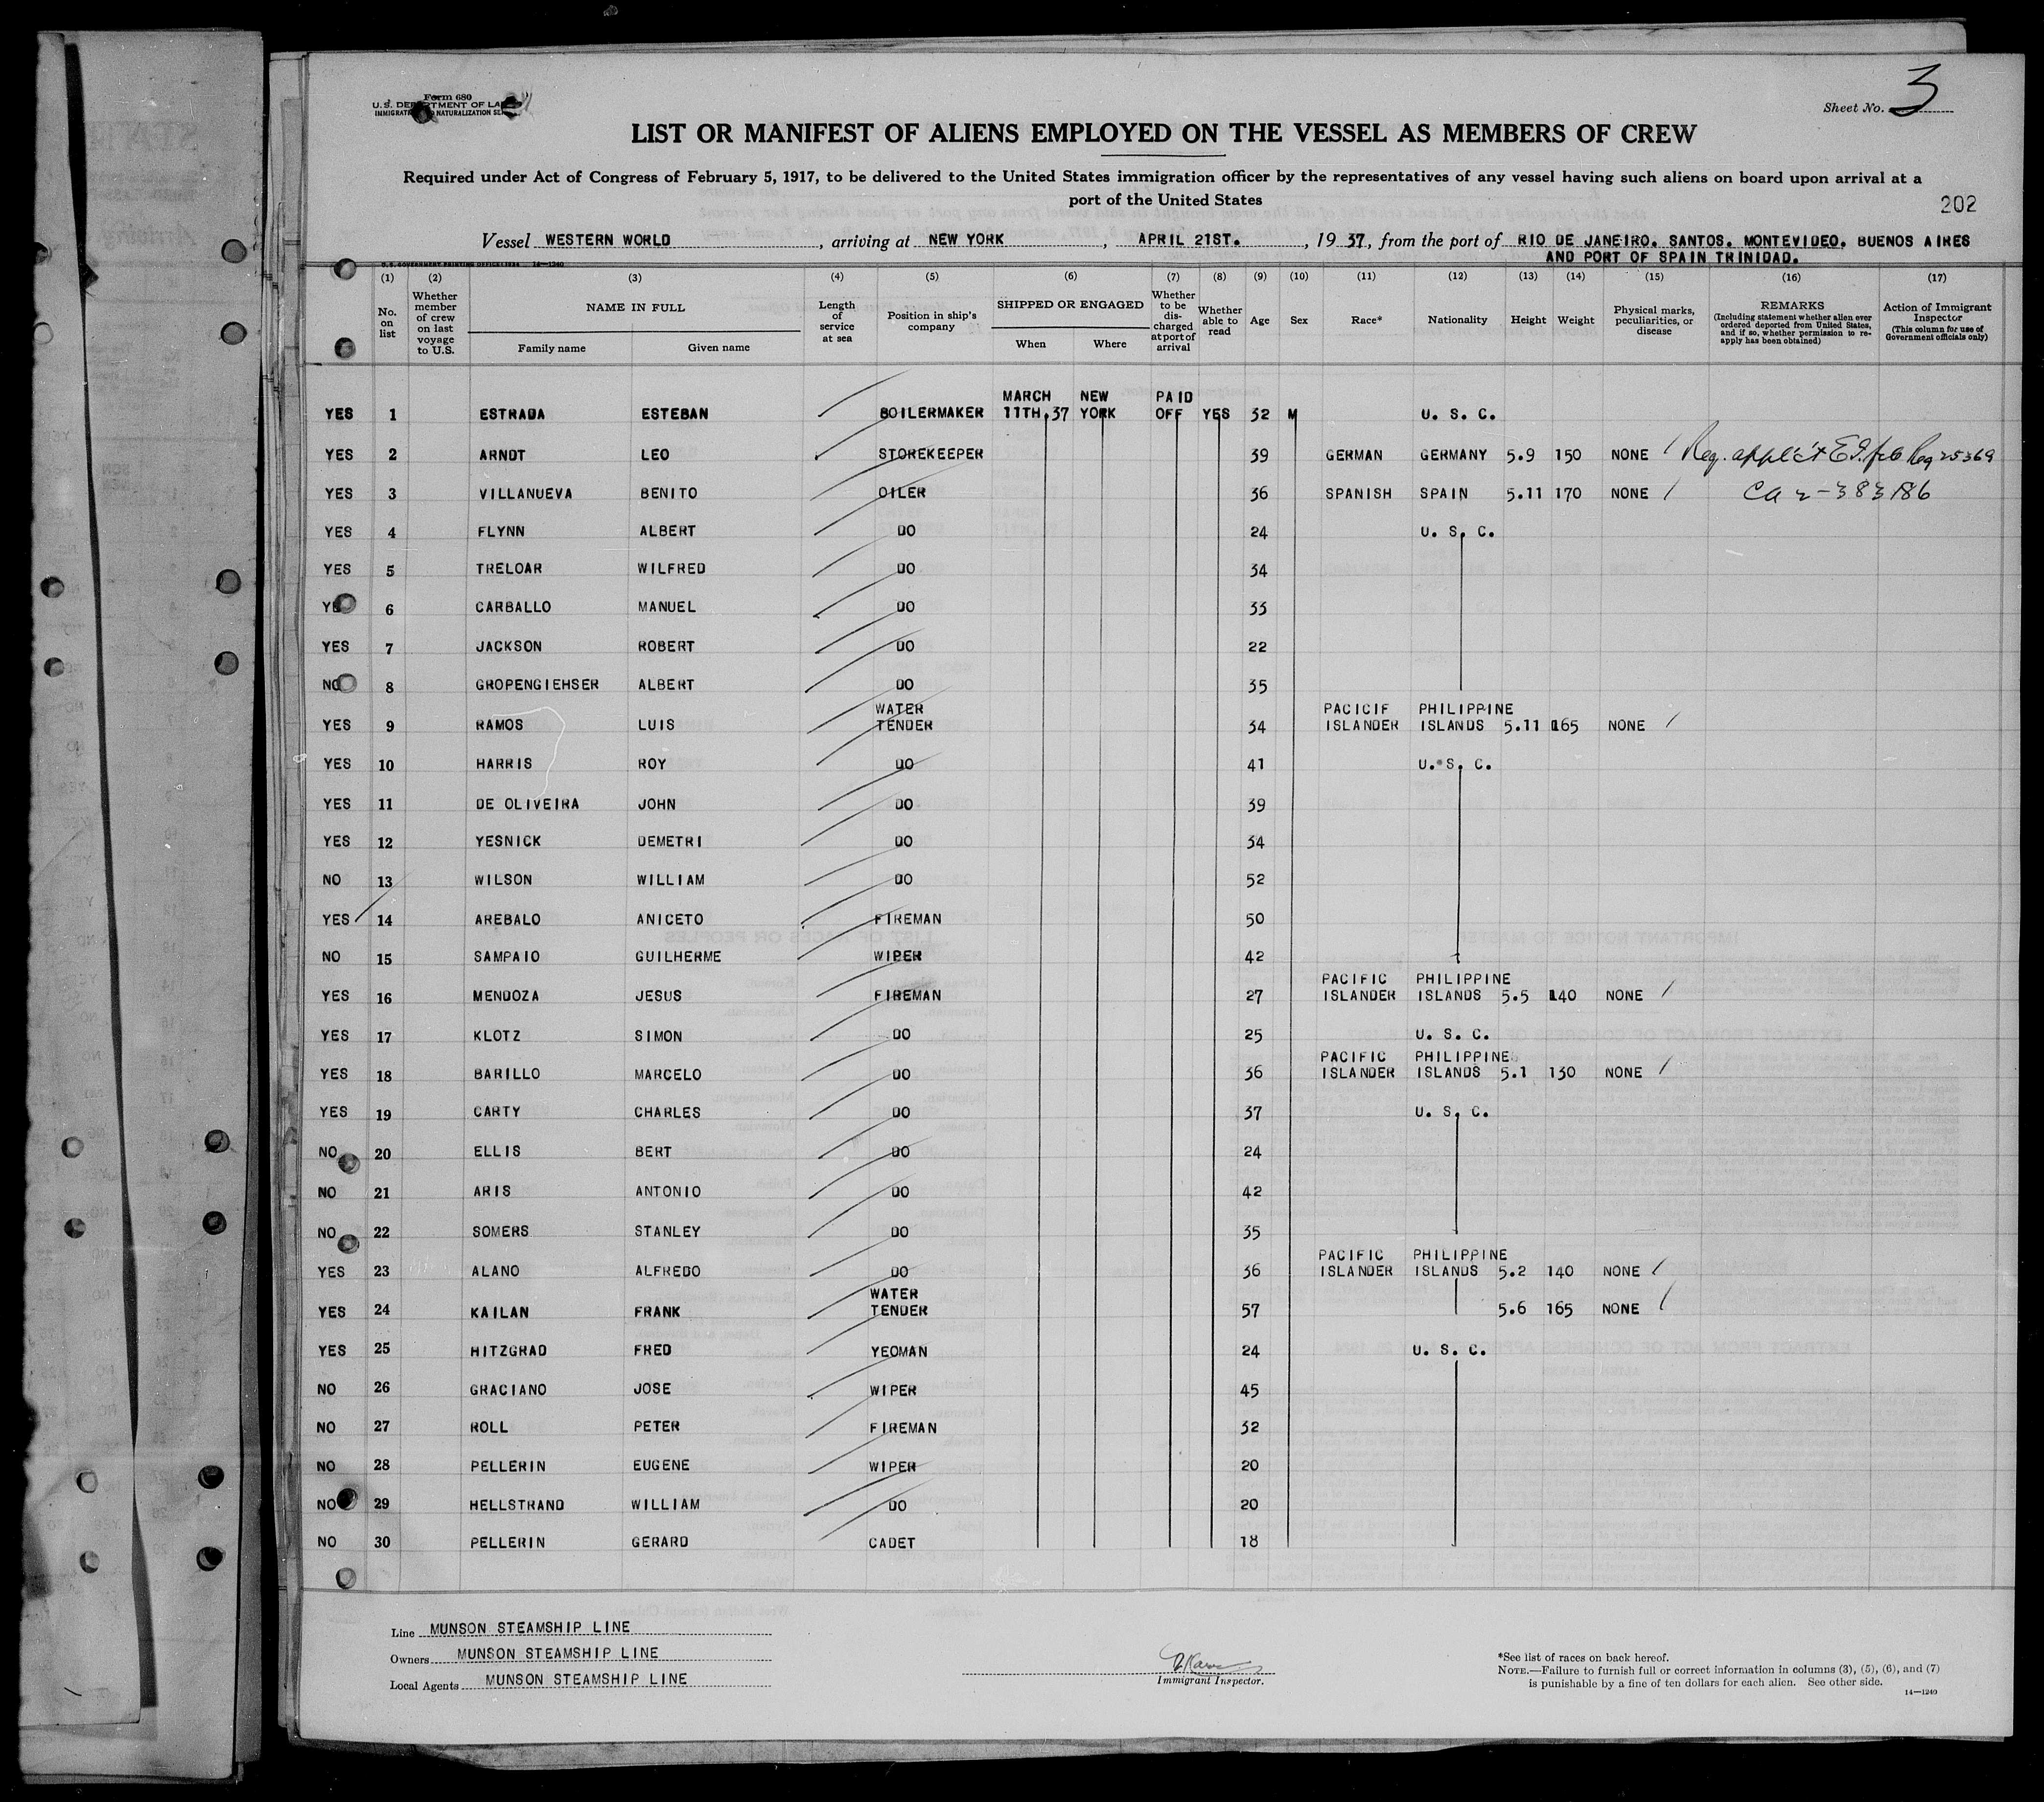 Form 680
U.S. DEPARTMENT OF LABOR
IMMIGRATION AND NATURALIZATION SERVICE
Sheet No. 3
LIST OR MANIFEST OF ALIENS EMPLOYED ON THE VESSEL AS MEMBERS OF CREW
Required under Act of Congress of February 5, 1917, to be delivered to the United States immigration officer by the representatives of any vessel having such aliens on board upon arrival at a
port of the United States
202
Vessel WESTERN WORLD, arriving at NEW YORK, APRIL 21ST., 1937, from the port of RIO DE JANEIRO. SANTOS. MONTEVIDEO. BUENOS AIRES
AND PORT OF SPAIN TRINIDAD.
U.S. GOVERNMENT PRINTING OFFICE: 1934 14—1240
(1) (2) (3) (4) (5) (6) (7) (8) (9) (10) (11) (12) (13) (14) (15) (16) (17)
No. on list
Whether member of crew on last voyage to U.S.
NAME IN FULL
Family name Given name
Length of service at sea
Position in ship's company
SHIPPED OR ENGAGED
When Where
Whether to be discharged at port of arrival
Whether able to read
Age
Sex
Race*
Nationality
Height
Weight
Physical marks, peculiarities, or disease
REMARKS
(Including statement whether alien ever ordered deported from United States, and if so, whether permission to reapply has been obtained)
Action of Immigrant Inspector
(This column for use of Government officials only)
MARCH NEW PAID
YES 1 ESTRADA ESTEBAN BOILERMAKER 11TH.37 YORK OFF YES 32 M U. S. C.
YES 2 ARNDT LEO STOREKEEPER 39 GERMAN GERMANY 5.9 150 NONE / Reg. 25369
YES 3 VILLANUEVA BENITO OILER 36 SPANISH SPAIN 5.11 170 NONE / Ca 2-383186
YES 4 FLYNN ALBERT DO 24 U. S. C.
YES 5 TRELOAR WILFRED DO 34
YES 6 CARBALLO MANUEL DO 33
YES 7 JACKSON ROBERT DO 22
NO 8 GROPENGIEHSER ALBERT DO 35
WATER PACICIF PHILIPPINE
YES 9 RAMOS LUIS TENDER 34 ISLANDER ISLANDS 5.11 165 NONE /
YES 10 HARRIS ROY DO 41 U. S. C.
YES 11 DE OLIVEIRA JOHN DO 39
YES 12 YESNICK DEMETRI DO 34
NO 13 WILSON WILLIAM DO 52
YES 14 AREBALO ANICETO FIREMAN 50
NO 15 SAMPAIO GUILHERME WIPER 42
PACIFIC PHILIPPINE
YES 16 MENDOZA JESUS FIREMAN 27 ISLANDER ISLANDS 5.5 140 NONE /
YES 17 KLOTZ SIMON DO 25 U. S. C.
PACIFIC PHILIPPINE
YES 18 BARILLO MARCELO DO 36 ISLANDER ISLANDS 5.1 130 NONE /
YES 19 CARTY CHARLES DO 37 U. S. C.
NO 20 ELLIS BERT DO 24
NO 21 ARIS ANTONIO DO 42
NO 22 SOMERS STANLEY DO 35
PACIFIC PHILIPPINE
YES 23 ALANO ALFREDO DO 36 ISLANDER ISLANDS 5.2 140 NONE /
WATER
YES 24 KAILAN FRANK TENDER 57 5.6 165 NONE /
YES 25 HITZGRAD FRED YEOMAN 24 U. S. C.
NO 26 GRACIANO JOSE WIPER 45
NO 27 ROLL PETER FIREMAN 32
NO 28 PELLERIN EUGENE WIPER 20
NO 29 HELLSTRAND WILLIAM DO 20
NO 30 PELLERIN GERARD CADET 18
Line MUNSON STEAMSHIP LINE
Owners MUNSON STEAMSHIP LINE
Local Agents MUNSON STEAMSHIP LINE
Immigrant Inspector.
*See list of races on back hereof.
NOTE.—Failure to furnish full or correct information in columns (3), (5), (6), and (7)
is punishable by a fine of ten dollars for each alien. See other side.
14—1240